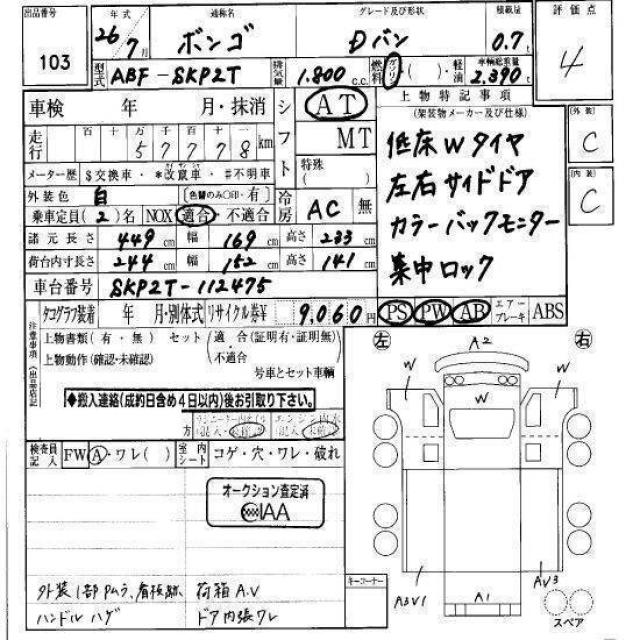 出品番号 103
年式 26年7月
通称名 ボンゴ
グレード及び形状 Dバン
積載量 0.7t
評価点 4
型式 ABF-SKP2T
排気量 1.800 c.c.
燃料 ガソリン ( )・軽油
車輌総重量 2.390t
車検 年 月・抹消
走行 百 十 万 千 百 十
5 7 7 7 8 km
メーター歴 $交換車・*改竄車・#不明車
外装色 白 (色替のみ○印・有)
乗車定員(2)名 NOX 適合・不適合
シフト AT
MT
特殊 ( )
冷房 AC 無
上物特記事項
(架装物メーカー及び仕様)
低床Wタイヤ
左右サイドドア
カラーバックモニター
集中ロック
外装 C
内装 C
諸元長さ 449cm 幅 169cm 高さ 233cm
荷台内寸長さ 244cm 幅 152cm 高さ 141cm
車台番号 SKP2T-112475
PS PW AB エアーブレーキ ABS
タコグラフ装着 年 月・別体式 リサイクル券¥ 9,060円
注意事項
上物書類(有・無) セット 適合(証明有・証明無)
・不適合
上物動作(確認・未確認)
号車とセット車輌
◆搬入連絡(成約日含め4日以内)後お引取り下さい。
検査員記入 FW A・ワレ( ) 室内シート コゲ・穴・ワレ・破れ
オークション査定済
IAA
外装1部Pムラ、看板跡、荷箱A.V
ハンドルハゲ ドア内張ワレ
キーコーナー
左 右
A2
W W W
A3V1 A1 AV3
スペア